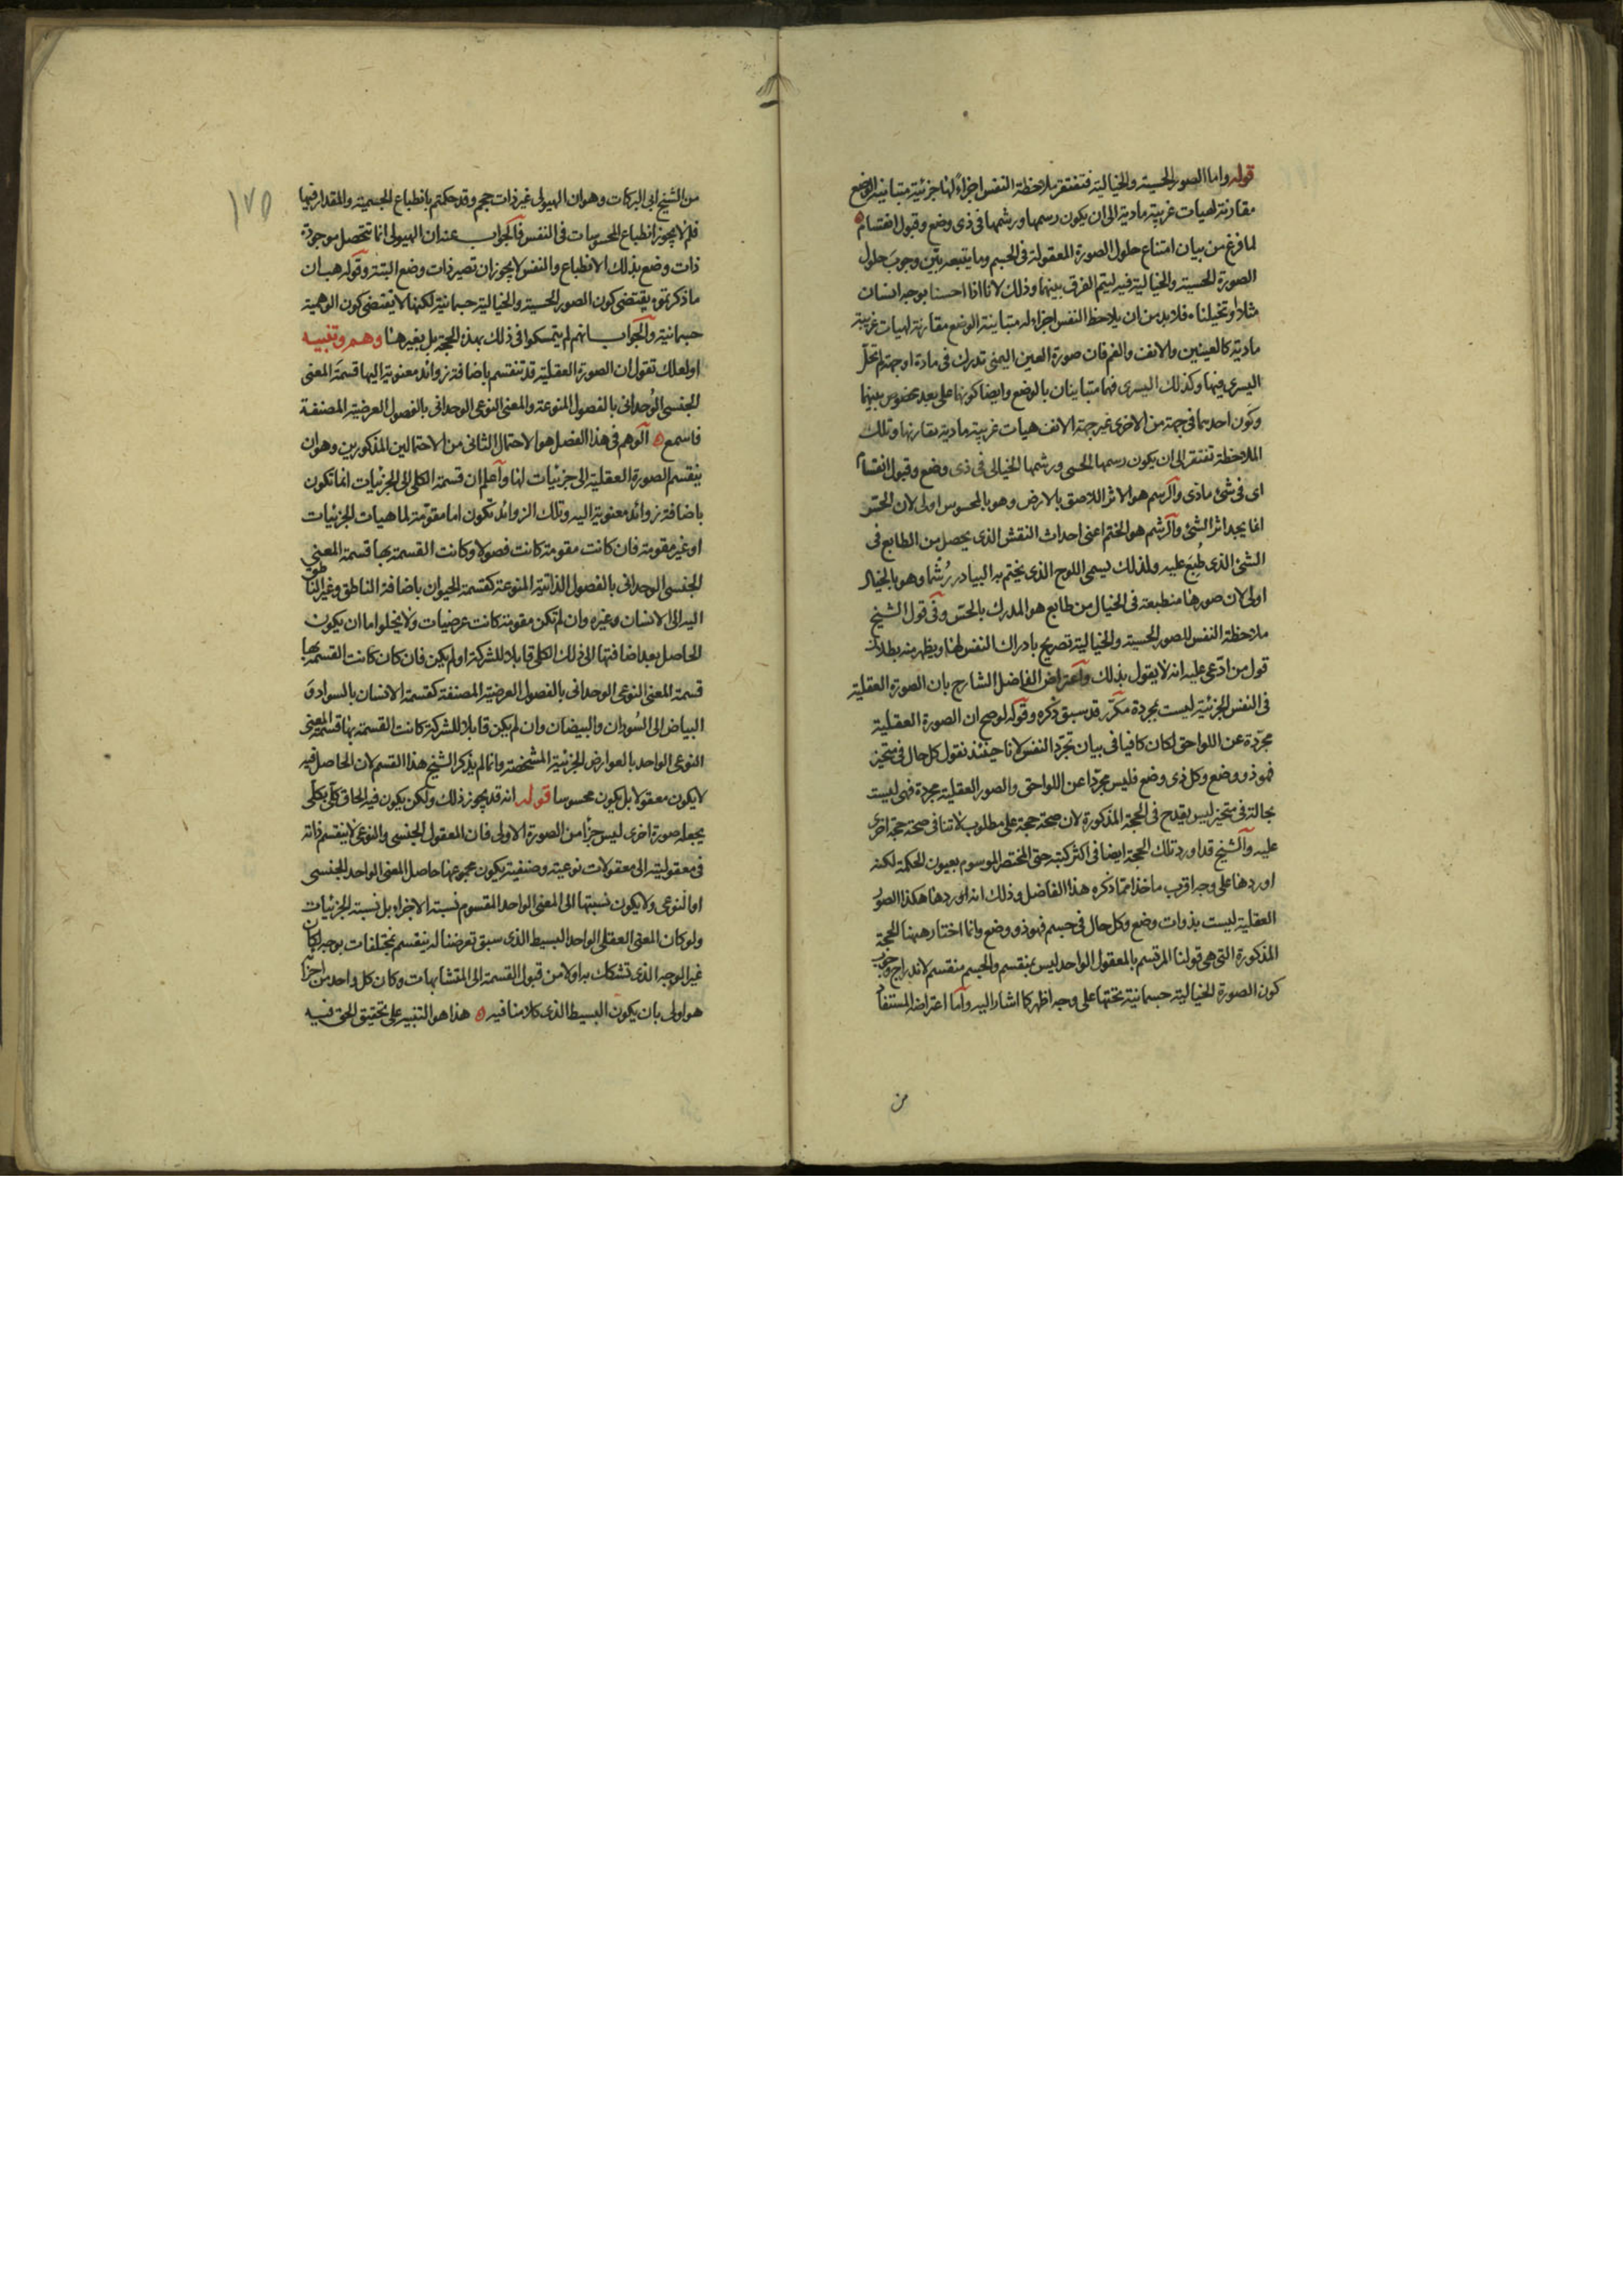 قوله واما الصور الحسية والخيالية فتفتقر ملاحظة النفس اجزاءً لها جزئية متباينة الوضع
مقارنة لهيات غريبة مادية الى ان يكون رسمها ورشمها فى ذى وضع وقبول انقسام
لما فرغ من بيان امتناع حلول الصورة المعقولة فى الجسم وما يتبعه بيّن وجوبَ حلول
الصورة الحسية والخيالية فيه ليتم الفرق بينهما وذلك لانا اذا احسسنا بوجه انسان
مثلا او تخيلناه فلا بد من ان يلاحظ النفس اجزاء له متباينة الوضع مقارنة لهيات غريبة
مادية كالعينين والانف والفم فان صورة العين اليمنى تدرك فى مادة او جهة لم تحلّ
اليسرى فيها وكذلك اليسرى فهما متباينان بالوضع وايضا كونها على بعد مخصوص بينهما
وكون احديهما فى جهة من الاخرى غير جهة الانف هيات غريبة مادية مقارنها وتلك
الملاحظة تفتقر الى ان يكون رسمها الحسى ورشمها الخيالى فى ذى وضع وقبول انقسام
اى فى شئ مادّى والرسم هو الاثر اللاصق بالارض وهو بالمحسوس اولى لان الحسّ
انما يجد اثر الشئ والرشم هو الختم اعنى احداث النقش الذى يحصل من الطابع فى
الشئ الذى طُبِعَ عليه ولذلك يسمى اللوح الذى يختم به البيادر رُشُما وهو بالخيال
اولى لان صورها منطبعة فى الخيال من طابع هو المدرك بالحسّ وفى قول الشيخ
ملاحظة النفس للصور الحسية والخيالية تصريح بادراك النفس لها ويظهر منه بطلان
قول من ادّعى عليه انه لا يقول بذلك واعتراض الفاضل الشارح بان الصورة العقلية
فى النفس الجزئية ليست بمجردة مكرّر قد سبق ذكره وقوله لو صح ان الصورة العقلية
مجرّدة عن اللواحق لكان كافيا فى بيان تجرّد النفس لانا حينئذ نقول كل حال فى متحيز
فهو ذو وضع وكل ذى وضع فليس مجرّدا عن اللواحق والصور العقلية مجردة فهى ليست
بحالة فى متحيز ليس يقدح فى الحجة المذكورة لان صحة حجة على مطلوب لا تنافى صحة حجة اخرى
عليه والشيخ قد اورد تلك الحجة ايضا فى اكثر كتبه حتى المختصر الموسوم بعيون الحكمة لكنه
اوردها على وجه اقرب ماخذا مما ذكره هذا الفاضل وذلك انه اوردها هكذا الصور
العقلية ليست بذوات وضع وكل حال فى جسم فهو ذو وضع وانما اختار ههنا الحجة
المذكورة التى هى قولنا المرتسم بالمعقول الواحد ليس بمنقسم والجسم منقسم لاندراج وجوب
كون الصورة الخيالية جسمانية تحتها على وجه اظهر كما اشار اليه واما اعتراضه المستفاد
من
١٧٥
من الشيخ ابى البركات وهو ان الهيولى غير ذات حجم وقد حكمتم بانطباع الجسمية والمقدار فيها
فلم لا يجوز انطباع المحسوسات فى النفس فالجواب عنه ان الهيولى انما تتحصل موجودة
ذات وضع بذلك الانطباع والنفس لا يجوز ان تصير ذات وضع البتة وقوله هب ان
ما ذكرتموه يقتضى كون الصور الحسية والخيالية جسمانية لكنها لا تقتضى كون الوهمية
جسمانية والجواب انهم لم يتمسكوا فى ذلك بهذه الحجة بل بغيرها وهم وتنبيه
او لعلك تقول ان الصورة العقلية قد تنقسم باضافة زوائد معنوية اليها قسمة المعنى
الجنسى الوُحدانى بالفصول المنوعة والمعنى النوعى الوحدانى بالفصول العرضية المصنفة
فاسمع الوهم فى هذا الفصل هو الاحتمال الثانى من الاحتمالين المذكورين وهو ان
ينقسم الصورة العقلية الى جزئيات لها واعلم ان قسمة الكلى الى الجزئيات انما تكون
باضافة زوائد معنوية اليه وتلك الزوائد تكون اما مقوّمة لماهيات الجزئيات
او غير مقومة فان كانت مقومة كانت فصولا وكانت القسمة بها قسمة المعنى
الجنسى الوحدانى بالفصول الذاتية المنوعة كقسمة الحيوان باضافة الناطق وغير الناطق
اليه الى الانسان وغيره وان لم تكن مقومة كانت عرضيات ولا يخلوا اما ان يكون
الحاصل بعد اضافتها الى ذلك الكلى قابلا للشركة او لم يكن فان كان كانت القسمة بها
قسمة المعنى النوعى الوحدانى بالفصول العرضية المصنفة كقسمة الانسان بالسواد و
البياض الى السُودان والبيضان وان لم يكن قابلا للشركة كانت القسمة بها قسمة المعنى
النوعى الواحد بالعوارض الجزئية المشخصة وانما لم يذكر الشيخ هذا القسم لان الحاصل فيه
لا يكون معقولا بل يكون محسوسا قوله انه قد يجوز ذلك ولكن يكون فيه الحاق كلّى بكلّى
يجعله صورة اخرى ليس جزأ من الصورة الاولى فان المعقول الجنسى والنوعى لا ينقسم ذاته
فى معقوليته الى معقولات نوعية وصنفية يكون مجموعها حاصل المعنى الواحد الجنسى
او النوعى ولا يكون نسبتها الى المعنى الواحد المقسوم نسبة الاجزاء بل نسبة الجزئيات
ولو كان المعنى العقلى الواحد البسيط الذى سبق تعرضنا له ينقسم بمختلفات بوجه لكان
غير الوجه الذى تشكك به اولا من قبول القسمة الى المتشابهات وكان كل واحد من اجزائه
هو اولى بان يكون البسيط الذى كلامنا فيه هذا هو التنبيه على تحقيق الحق فيه